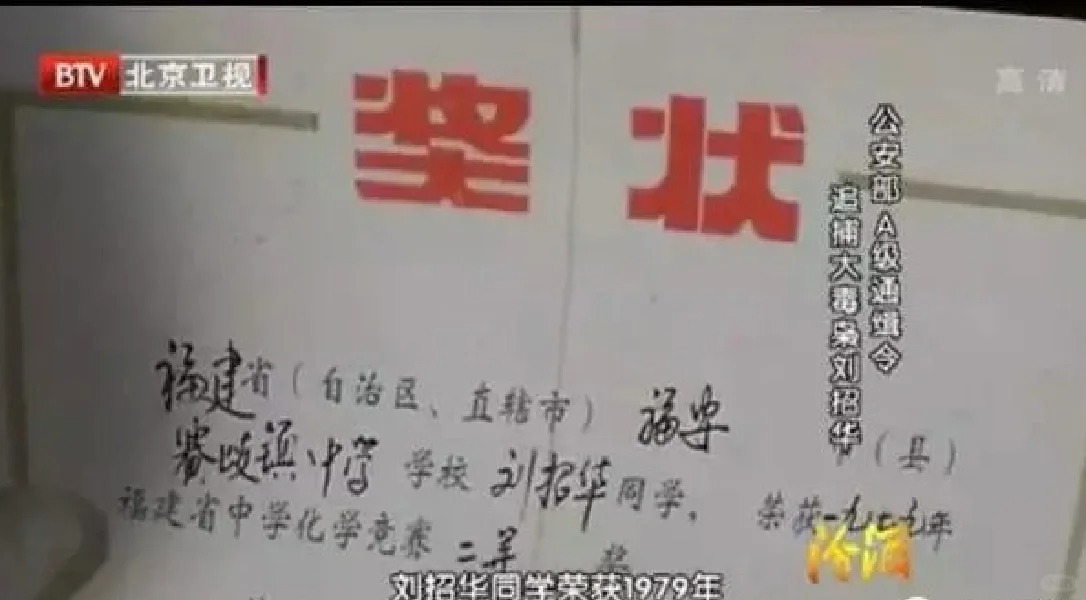 BTV 北京卫视
高清
奖状
公安部A级通缉令
追捕大毒枭刘招华
福建省(自治区、直辖市) 福安(县)
赛岐镇中学学校刘招华同学, 荣获一九七九年
福建省中学化学竞赛二等奖
刘招华同学荣获1979年